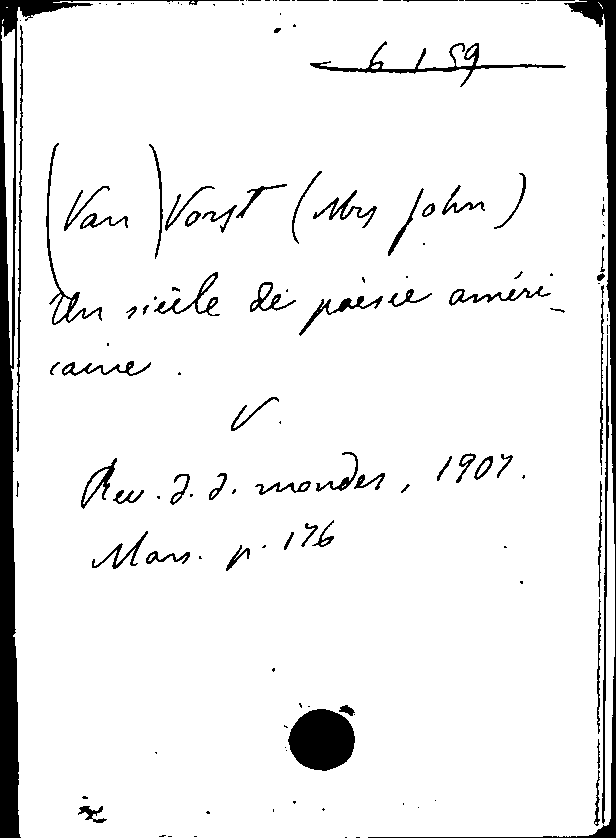 6 1 59
(Van) Vorst (Mrs John)
Un siècle de poésie améri-
caine.
V.
Rev. d. d. mondes, 1907.
Mars. p. 176